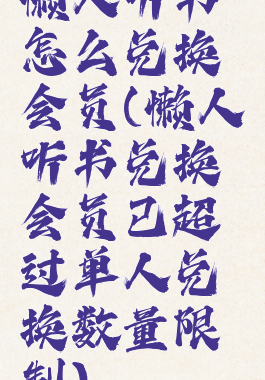 懒人听书
怎么兑换
会员(懒人
听书兑换
会员已超
过单人兑
换数量限
制)